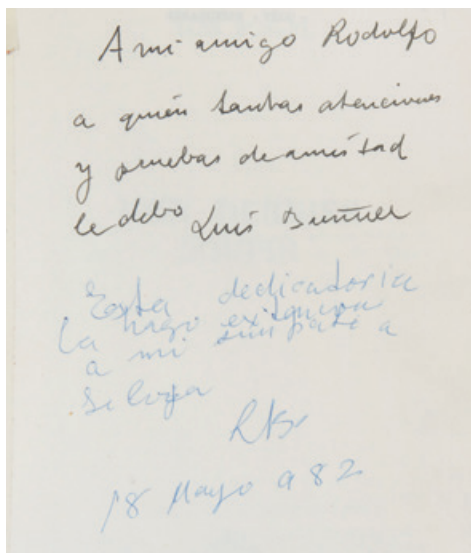 A mi amigo Rodolfo
a quién tantas atenciones
y pruebas de amistad
le debo Luis Buñuel
Esta dedicatoria
la hago
a mi simpática
Silvya
18 Mayo 982